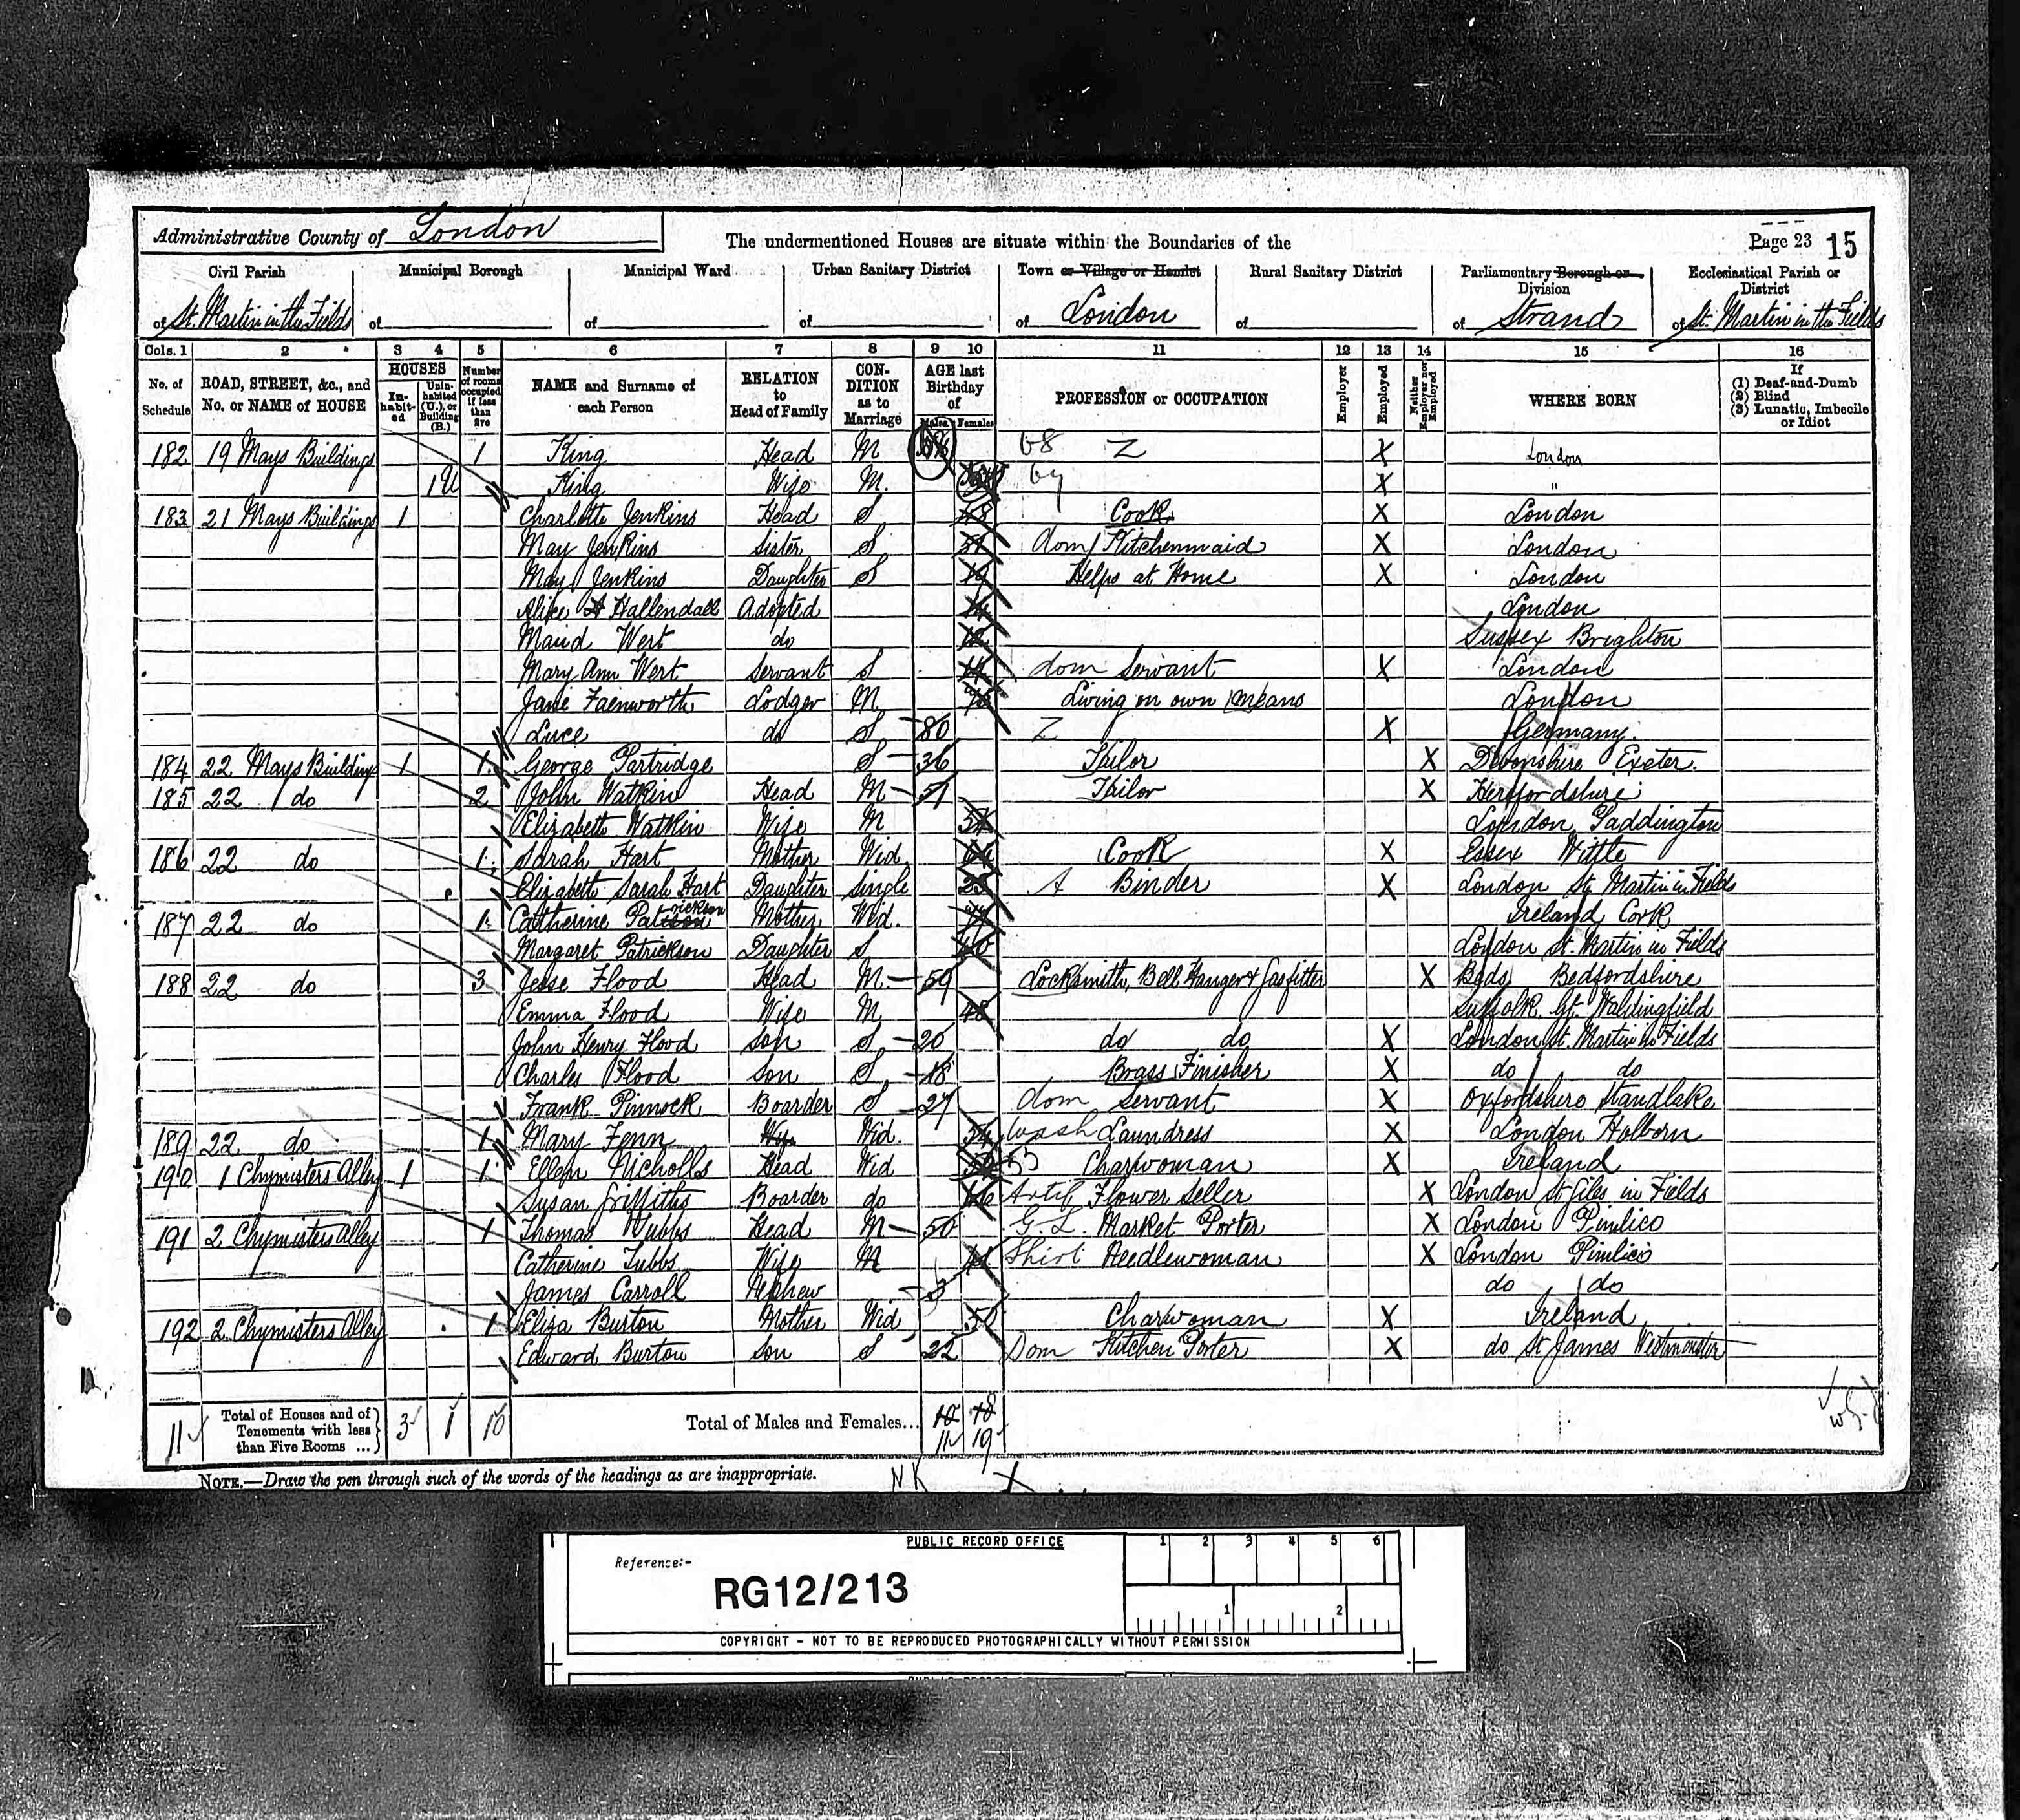 Administrative County of London The undermentioned Houses are situate within the Boundaries of the Page 23 15
Civil Parish Municipal Borough Municipal Ward Urban Sanitary District Town or Village or Hamlet Rural Sanitary District Parliamentary Borough or Division Ecclesiastical Parish or District
of St. Martin in the Fields of of of of London of of Strand of St. Martin in the Fields
Cols. 1 2 3 4 5 6 7 8 9 10 11 12 13 14 15 16
No. of Schedule ROAD, STREET, &c., and No. or NAME of HOUSE HOUSES In-habit-ed Unin-habited (U.), or Building (B.) Number of rooms occupied if less than five NAME and Surname of each Person RELATION to Head of Family CON-DITION as to Marriage AGE last Birthday of Males Females PROFESSION or OCCUPATION Employer Employed Neither Employer nor Employed WHERE BORN If (1) Deaf-and-Dumb (2) Blind (3) Lunatic, Imbecile or Idiot
182 19 Mays Buildings 1 King Head M 68 Z X London
1 U King Wife M. X "
183 21 Mays Buildings 1 Charlotte Jenkins Head S 48 Cook X London
May Jenkins Sister S dom Kitchenmaid X London
May Jenkins Daughter S 19 Helps at Home X London
Alice Hallendall Adopted 14 London
Maud Wert do 12 Sussex Brighton
Mary Ann Wert Servant S dom Servant X London
Janie Faenworth Lodger M Living on own Means London
Luce do S 80 Z X Germany.
184 22 Mays Buildings 1 1 George Partridge S 36 Tailor X Devonshire Exeter.
185 22 do 2 John Watkin Head M 51 Tailor X Herefordshire
Elizabeth Watkin Wife M London Paddington
186 22 do 1 Sarah Hart Mother Wid 64 Cook X Essex Wittle
Elizabeth Sarah Hart Daughter Single 23 A Binder X London St. Martin in Fields
187 22 do 1 Catherine Patrickson Mother Wid. Ireland Cork
Margaret Patrickson Daughter S 40 London St. Martin in Fields
188 22 do 3 Jesse Flood Head M 59 Locksmith, Bell Hanger & Gasfitter X Beds Bedfordshire
Emma Flood Wife M 48 Suffolk. Gt. Waldingfield
John Henry Flood Son S 20 do do X London St. Martin in Fields
Charles Flood Son S 18 Brass Finisher X do do
Frank Pinnock Boarder S 27 dom Servant X Oxfordshire Standlake
189 22 do 1 Mary Fenn Wid. 54 Wash Laundress X London Holborn
190 1 Chymisters Alley 1 1 Ellen Nicholls Head Wid Charwoman X Ireland
Susan Griffiths Boarder do 46 Artif Flower Seller X London St Giles in Fields
191 2 Chymisters Alley 1 Thomas Tubbs Head M 50 G. L. Market Porter X London Pimlico
Catherine Tubbs Wife M Shirt Needlewoman X London Pimlico
James Carroll Nephew 3 do do
192 2 Chymisters Alley 1 Eliza Burton Mother Wid 50 Charwoman X Ireland
Edward Burton Son S 22 Dom Kitchen Porter X do St James Westminster
11 Total of Houses and of Tenements with less than Five Rooms ... 3 1 10 Total of Males and Females... 10 18
11 19
NOTE.—Draw the pen through such of the words of the headings as are inappropriate. NK X
PUBLIC RECORD OFFICE 1 2 3 4 5 6
Reference:-
RG12/213
1 2
COPYRIGHT - NOT TO BE REPRODUCED PHOTOGRAPHICALLY WITHOUT PERMISSION